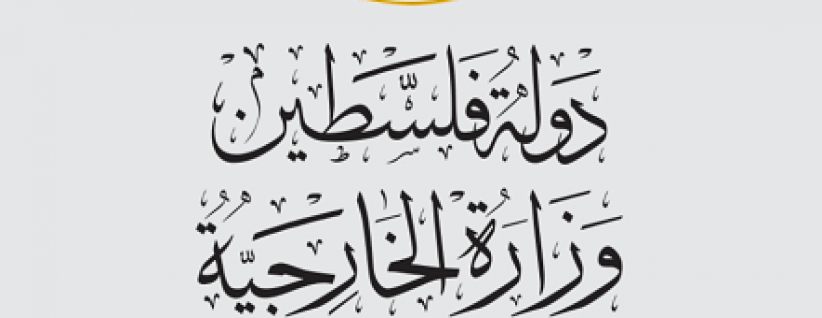 دَوْلَةُ فَلَسْطِين
وَزَارَةُ الخَارِجِيَّةُ